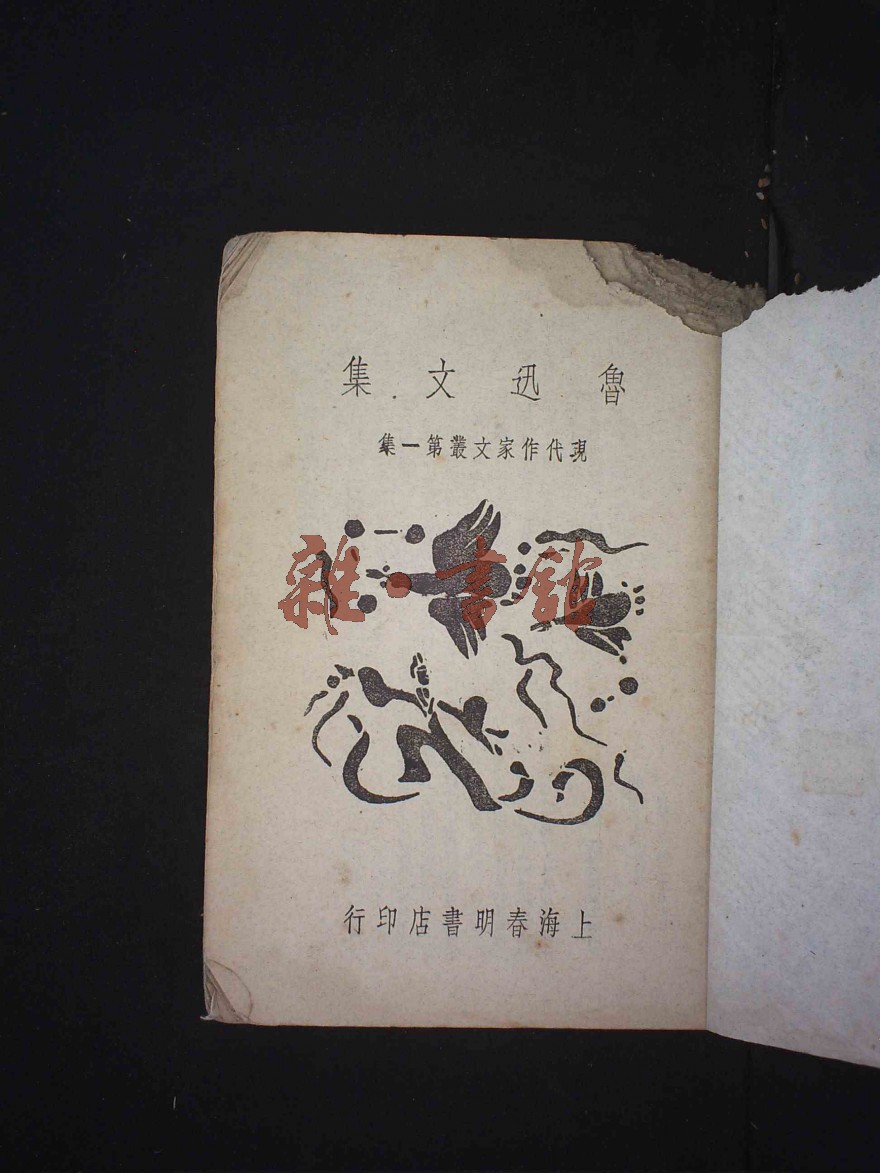 魯迅文集
現代作家文叢第一集
雜·書館
上海春明書店印行